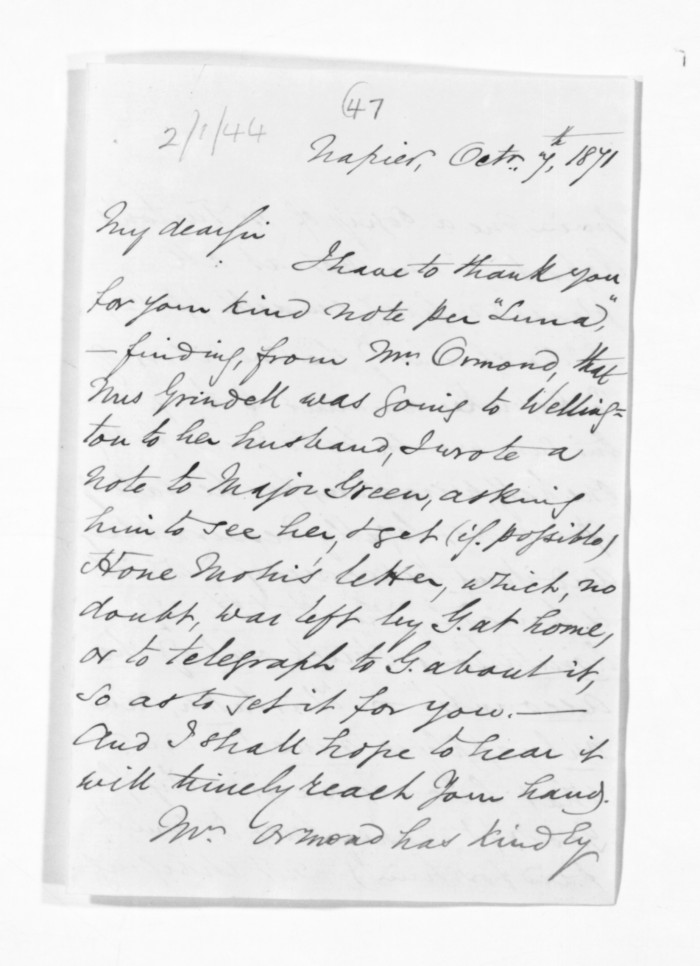 (47
2/1/44
Napier, Octr. 7th, 1871
My dear Sir
I have to thank you
for your kind note per "Luna",
— finding, from Mr. Ormond, that
Mrs Grindell was going to Welling=
ton to her husband, I wrote a
note to Major Green, asking
him to see her, & get (if possible)
Hone Mohi's letter, which, no
doubt, was left by G. at home,
or to telegraph to G. about it,
so as to get it for you. —
And I shall hope to hear it
will timely reach your hand.
Mr. Ormond has kindly